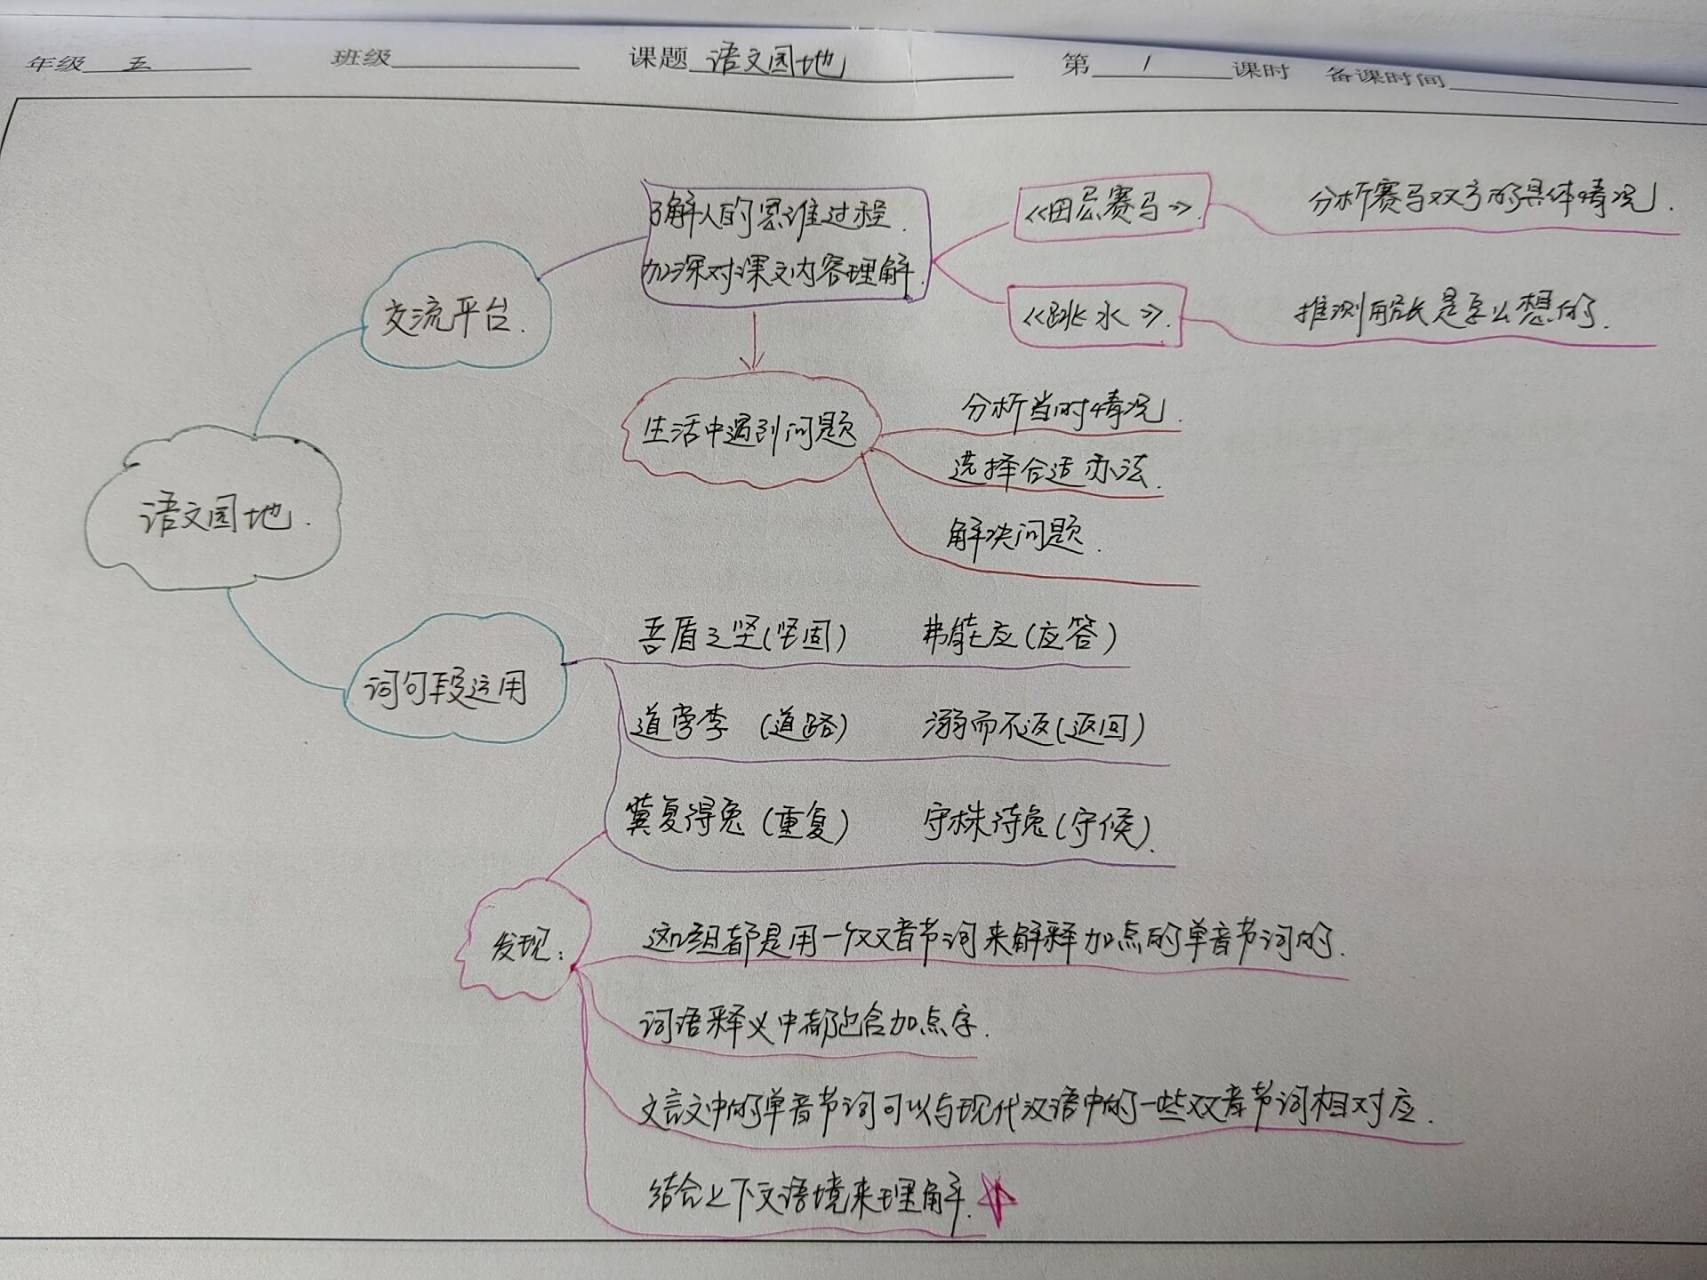 年级 五 班级 课题 语文园地 第 1 课时 备课时间
了解人的思维过程.
加深对课文内容理解.
《田忌赛马》.
分析赛马双方的具体情况.
交流平台.
《跳水》.
推测船长是怎么想的.
生活中遇到问题
分析当时情况.
选择合适办法.
解决问题.
语文园地.
词句段运用
吾盾之坚(坚固) 弗能应(应答)
道旁李 (道路) 溺而不返(返回)
冀复得兔(重复) 守株待兔(守候).
发现:
这组都是用一个双音节词来解释加点的单音节词的.
词语释义中都包含加点字.
文言文中的单音节词可以与现代汉语中的一些双音节词相对应.
结合上下文语境来理解.